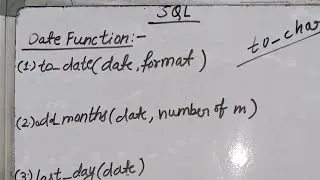 SQL
Date Function:-
to_char
(1.) to_date(date, format)
(2.) add_months(date, number of m)
(3) last_day(date)